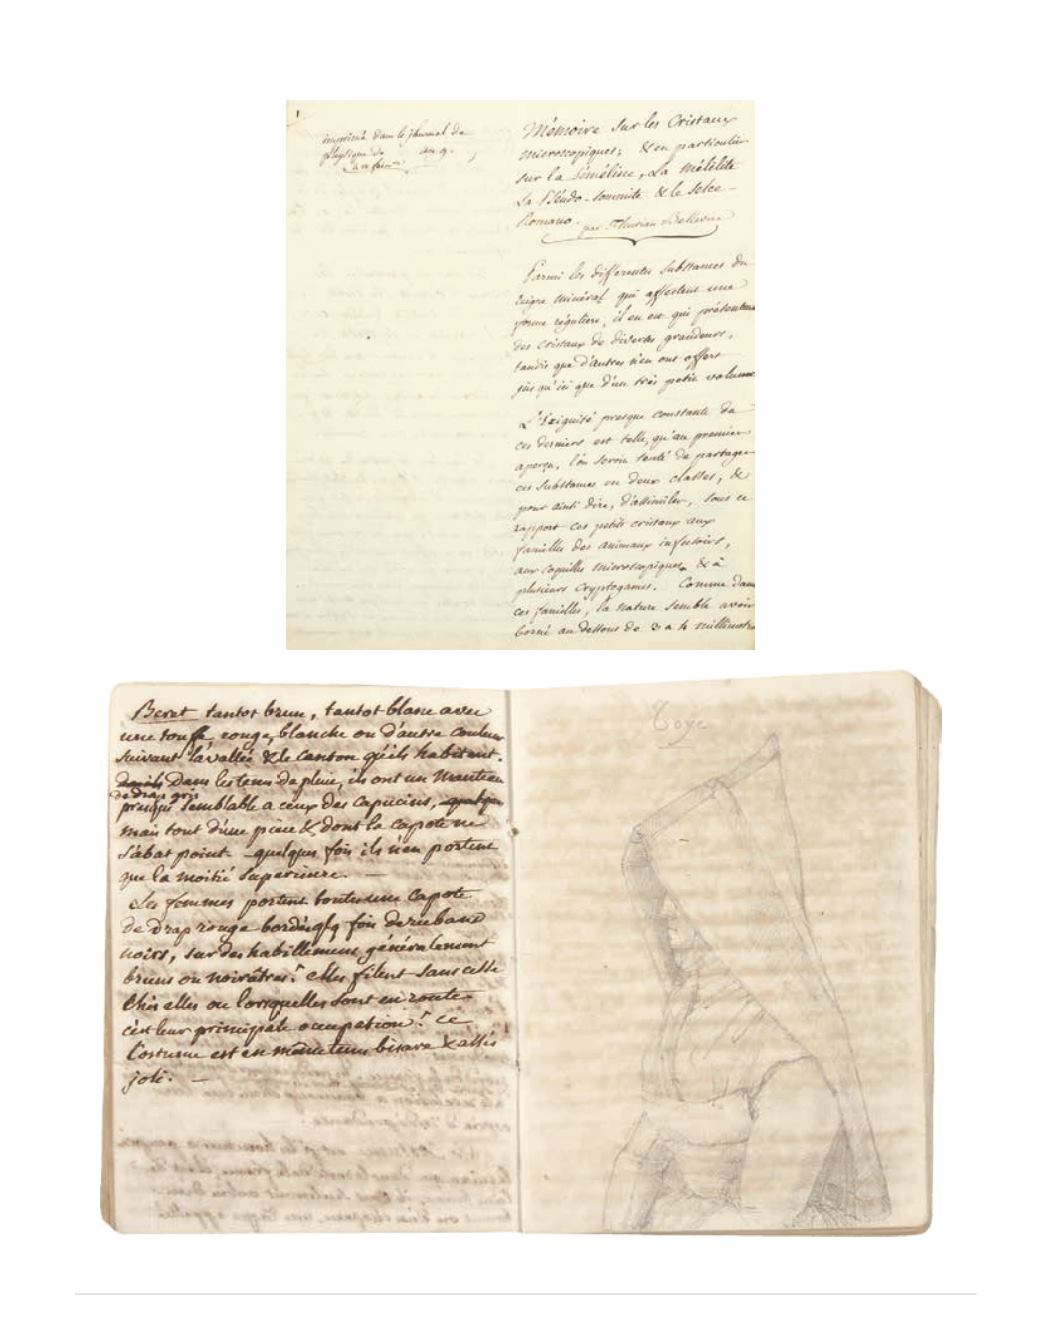 1
imprimé dans le journal de
physique de an 9.
Mémoire sur les Cristaux
microscopiques; & en particulier
sur la Séméline, La Mélilite
La Pséudo-sommite & le Selce-
Romano. par Fleuriau de Bellevue
Parmi les différentes substances du
règne minéral qui affectent une
forme régulière, il en est qui présentent
des cristaux de diverses grandeurs,
tandis que d'autres n'en ont offert
jusqu'ici que d'un très petit volume
L'Exiguité presque constante de
ces derniers est telle, qu'au premier
aperçu, l'on seroit tenté de partager
ces substances en deux classes, &
pour ainsi dire, d'assimiler, sous ce
rapport ces petits cristaux aux
familles des animaux infusoirs,
aux coquilles microscopiques & à
plusieurs Cryptogames. Comme dans
ces familles, la nature semble avoir
borné au dessous de 3 a 4 millimètres
Beret tantot brun, tantot blanc avec
une touffe rouge, blanche ou d'autre couleur
suivant la vallée & le canton qu'ils habitent.
Dans les tems de pluie, ils ont un Manteau
de drap gris
presque semblable a ceux des capucins,
mais tout d'une pièce & dont la capote ne
s'abat point. quelques fois ils n'en portent
que la moitié Supérieure. —
Les femmes portent toutes une Capote
de drap rouge bordé qlq fois de ruband
noirs, sur des habillemens généralement
bruns ou noirâtres: elles filent sans cesse
Chès elles ou lorsquelles sont en route
c'est leur principale occupation: Ce
Costume est en même tems bisare & assés
joli. —